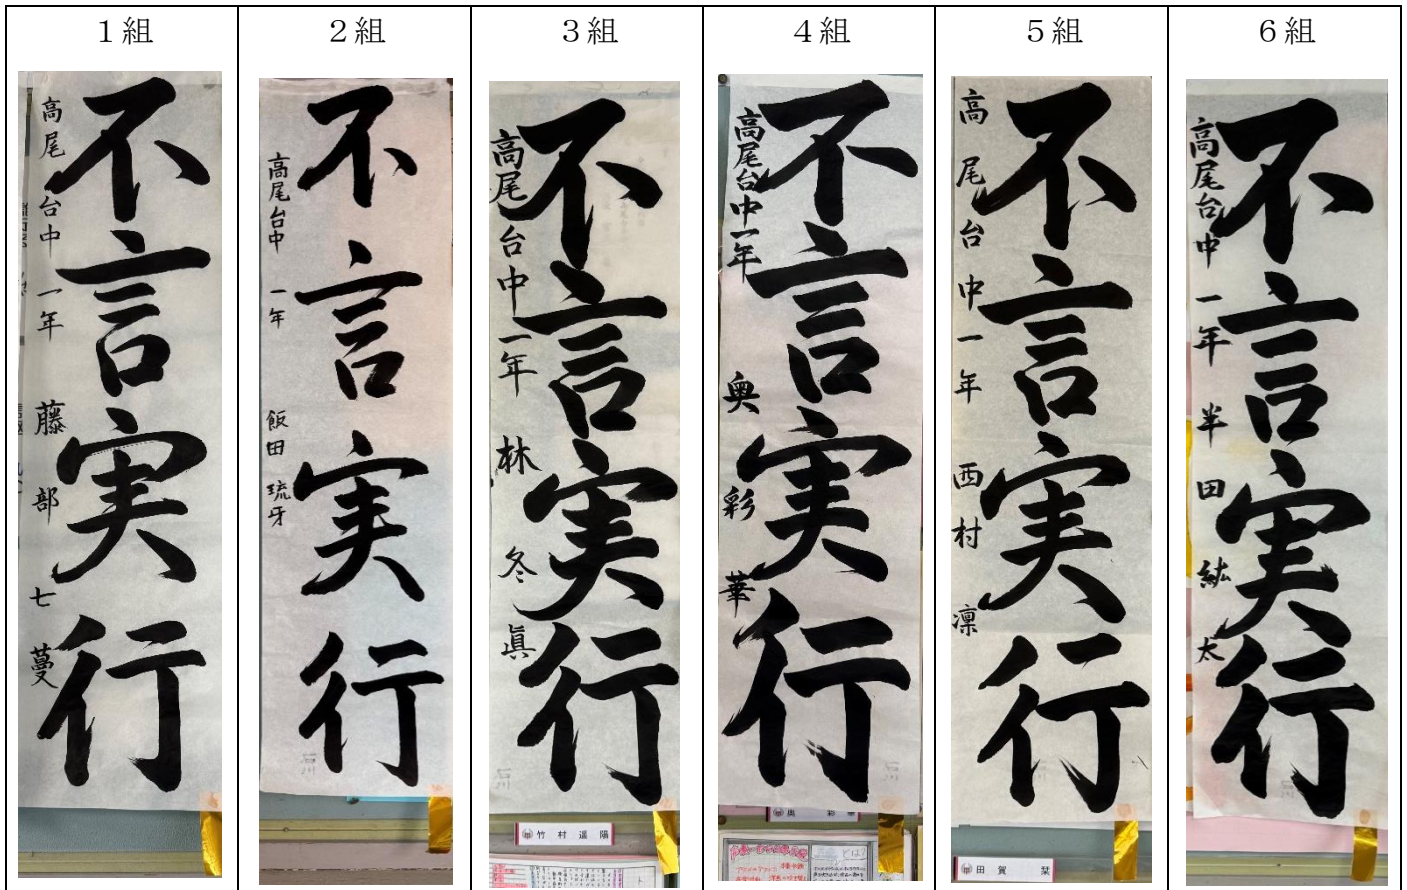 １組
２組
３組
４組
５組
６組
不言実行
高尾台中 一年 藤部 七蔓
不言実行
高尾台中 一年 飯田 琉牙
不言実行
高尾台中 一年 林 冬眞
竹村遥陽
不言実行
高尾台中一年 奥 彩華
奥 彩華
不言実行
高尾台中一年 西村 凛
田賀 栞
不言実行
高尾台中 一年 半田 紘太